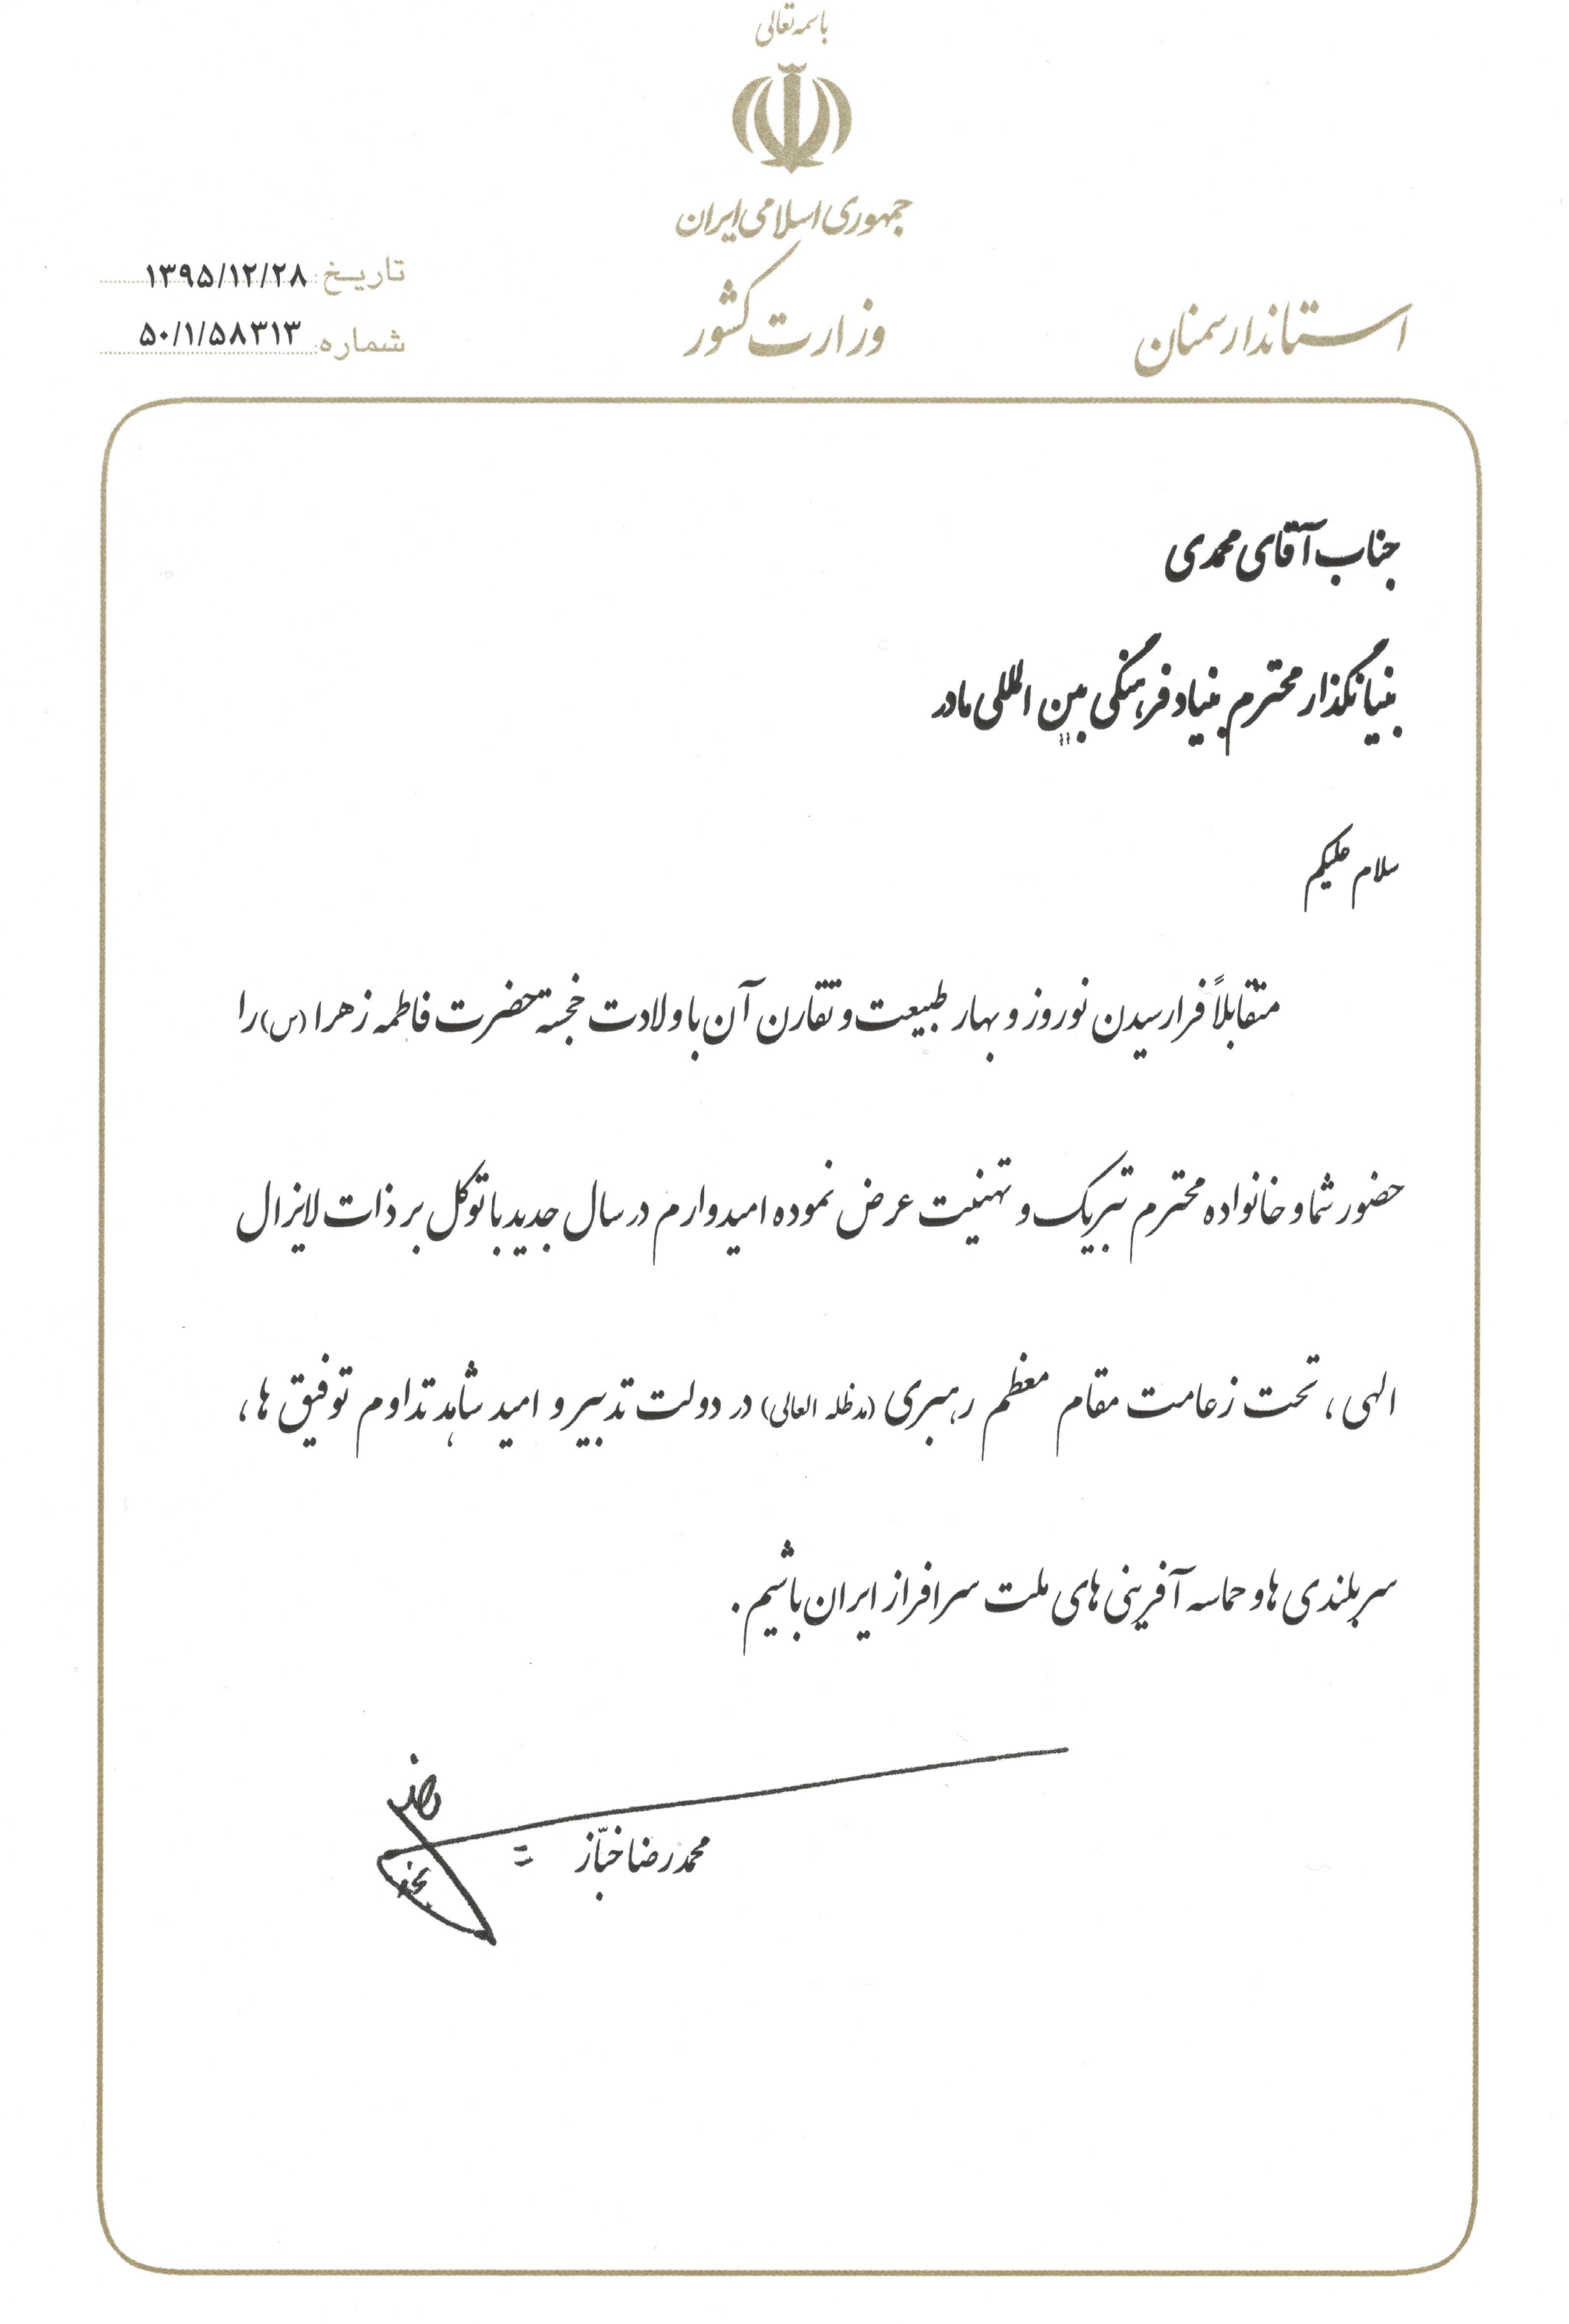 باسمه تعالی
جمهوری اسلامی ایران
وزارت کشور
استاندار سمنان
تاریخ: ۱۳۹۵/۱۲/۲۸
شماره: ۵۰/۱/۵۸۳۱۳
جناب آقای محمدی
بنیانگذار محترم بنیاد فرهنگی بین المللی مادر
سلام علیکم
متقابلاً فرارسیدن نوروز و بهار طبیعت و تقارن آن با ولادت خجسته حضرت فاطمه زهرا (س) را
حضور شما و خانواده محترم تبریک و تهنیت عرض نموده امیدوارم در سال جدید با توکل بر ذات لایزال
الهی، تحت زعامت مقام معظم رهبری (مدظله العالی) در دولت تدبیر و امید شاهد تداوم توفیق ها،
سربلندی ها و حماسه آفرینی های ملت سرافراز ایران باشیم.
محمدرضا خبّاز